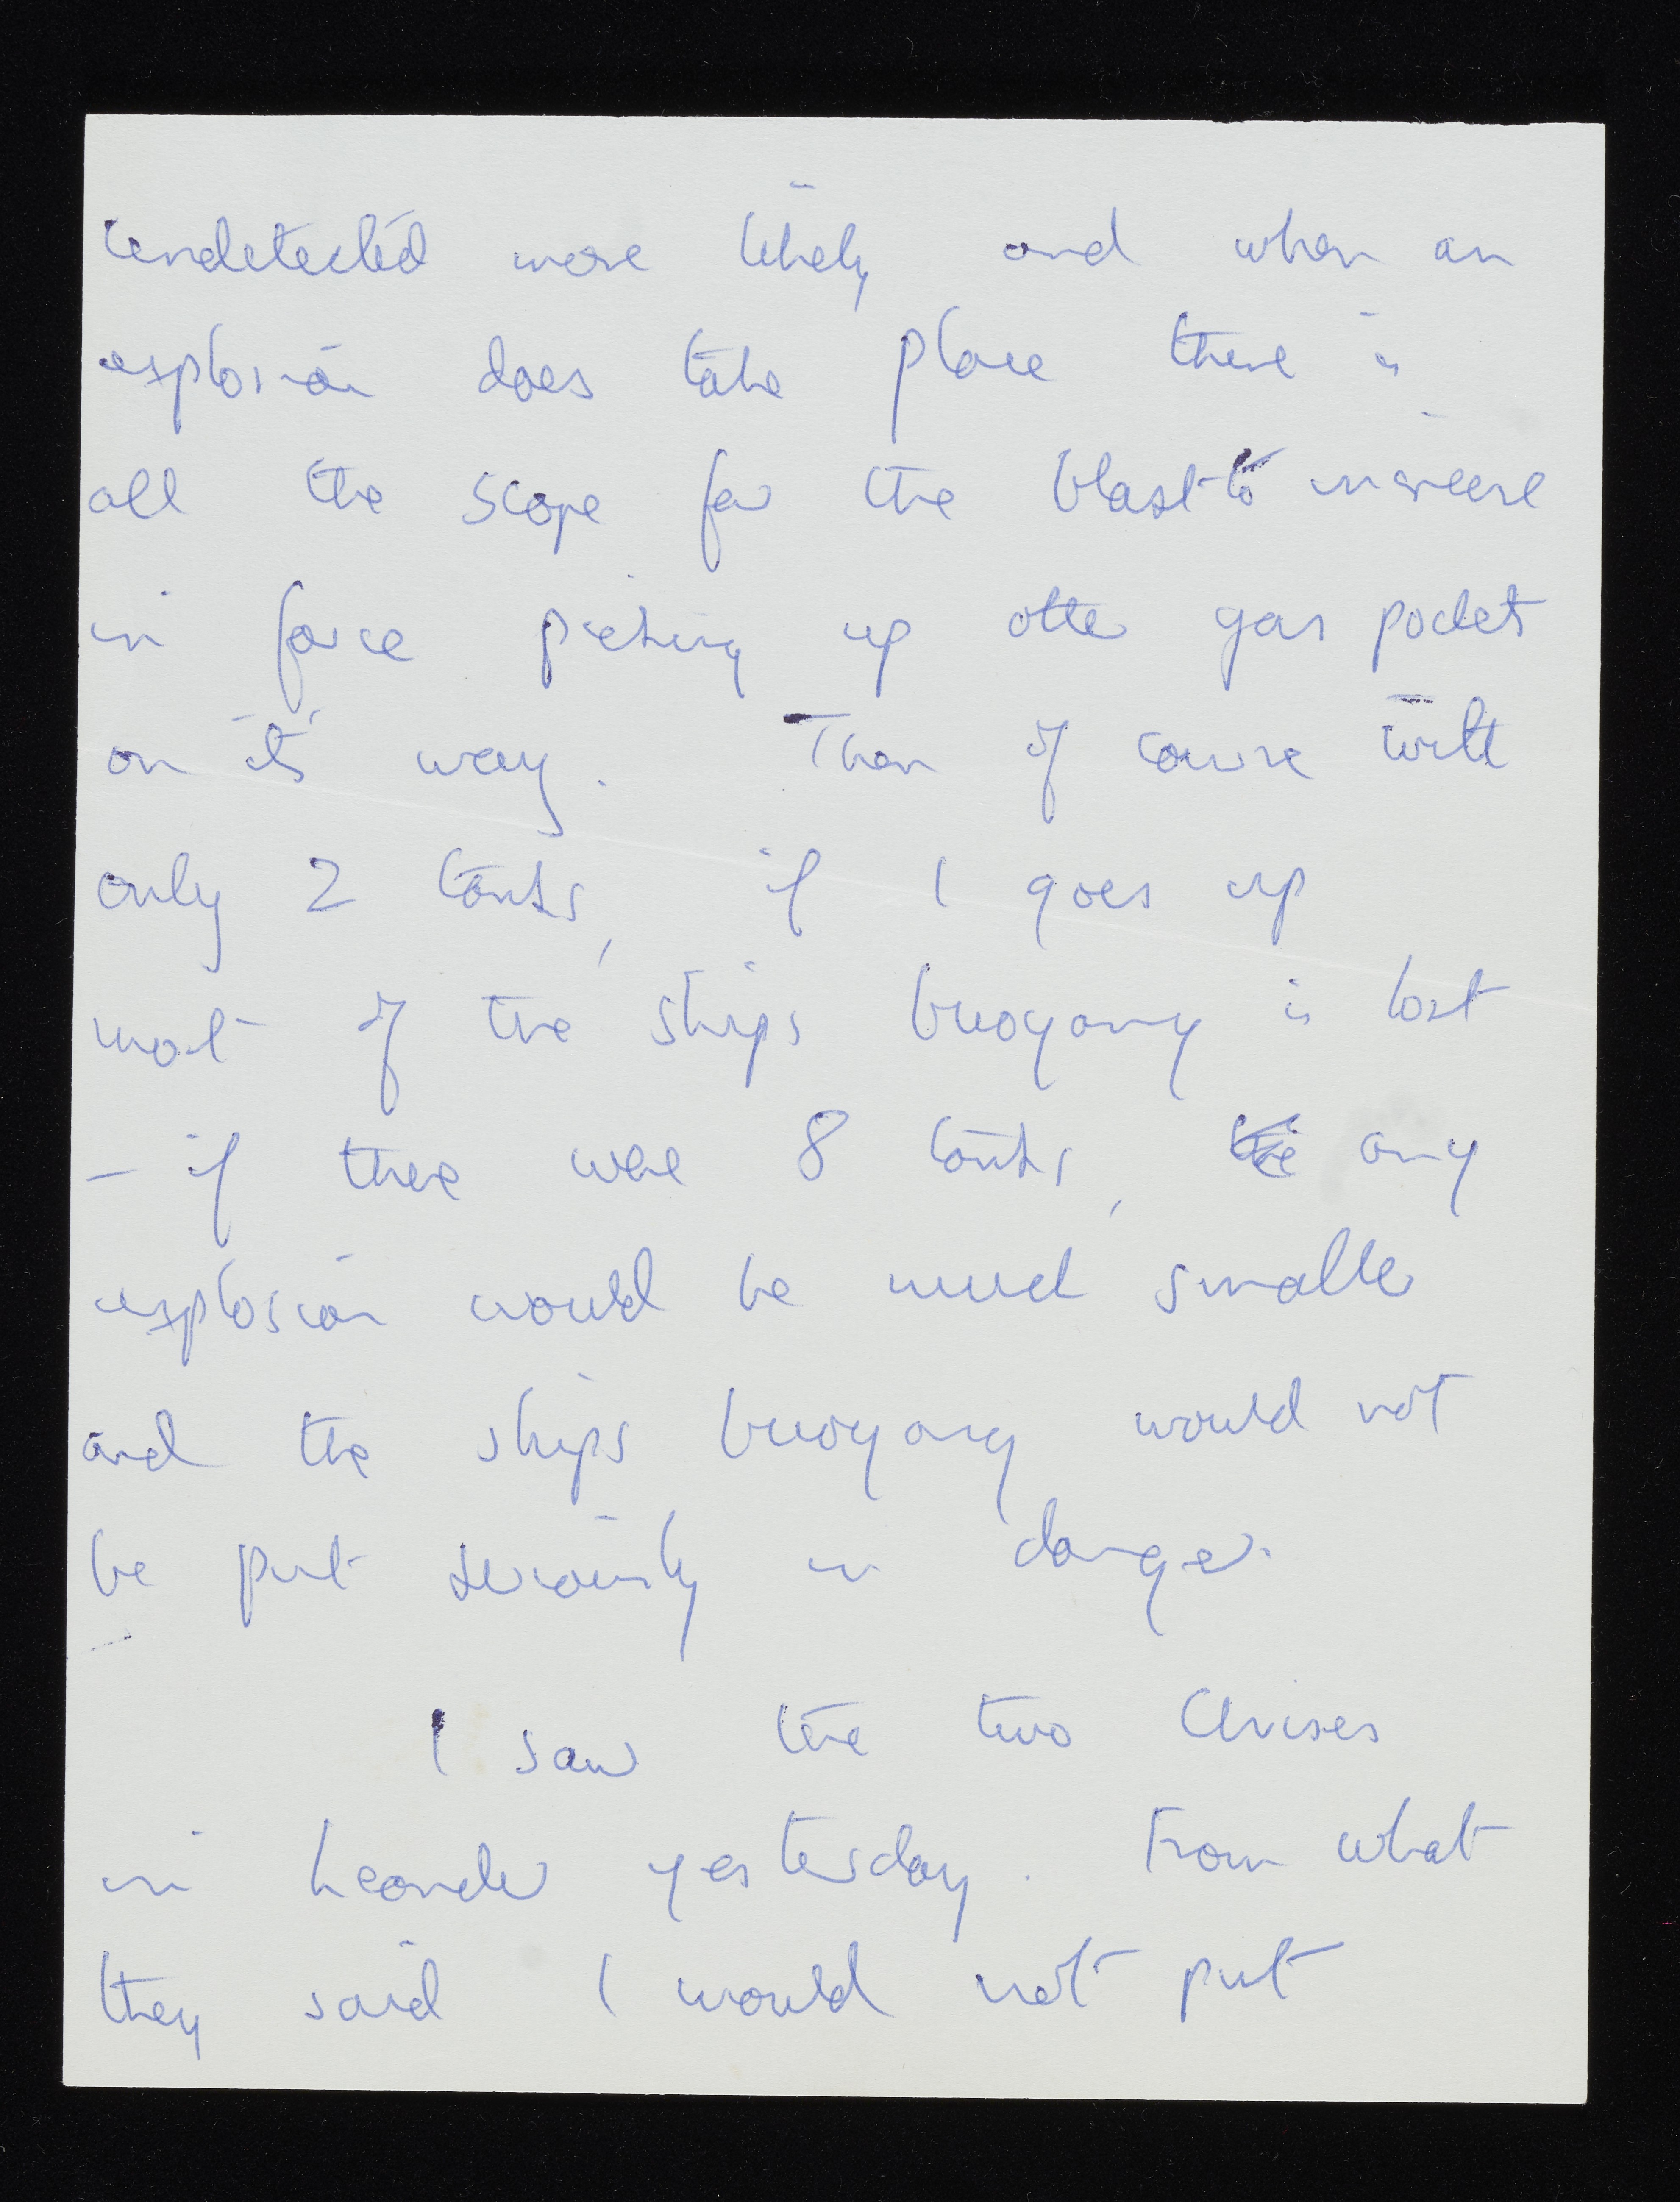 undetected more likely and when an
explosion does take place there is
all the scope for the blast to increase
in force picking up other gas pockets
on it's way. Then of course with
only 2 tanks, if 1 goes up
most of the ships buoyancy is lost
– if there were 8 tanks, the any
explosion would be much smaller
and the ships buoyancy would not
be put seriously in danger.
I saw the two
in yesterday. From what
they said I would not put